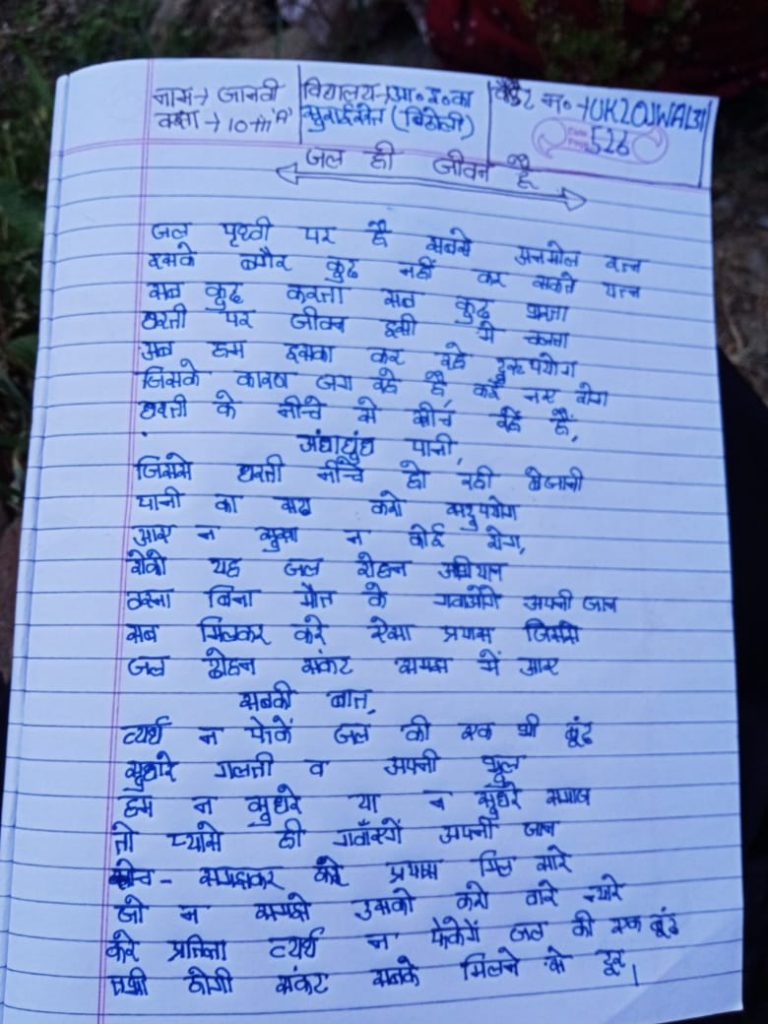 नाम → जानवी
कक्षा → 10th 'A'
विद्यालय → रा० इ० का
सुराईखेत (बिठोली)
कैडेट न० → UK20JWAL31
526
जल ही जीवन है
जल पृथ्वी पर है सबसे अनमोल रत्न
इसके बगैर कुछ नहीं कर सकते यत्न
सब कुछ करता सब कुछ
धरती पर जीवन इसी से चलता
अब हम इसका कर रहे दुरूपयोग
जिसके कारण लग रहे है, कई नए रोग
धरती के नीचे से खींच रहे हैं,
अंधाधुंध पानी,
जिससे धरती नीचे हो रही बेजानी
पानी का सदा करो सदुपयोग
आए न सूखा न कोई रोग,
रोको यह जल दोहन अभियान
वरना बिना मौत के गवाओगे अपनी जान
सब मिलकर करे ऐसा प्रयास जिससे
जल दोहन संकट समझ में आए
सबकी बात,
व्यर्थ न फेकें जल की एक भी बूंद
सुधारे गलती व अपनी भूल
हम न सुधरे या न सुधरे समाज
तो प्यासे ही गवाँएगें अपनी जान
सोच - समझकर करे प्रयास मिल सारे
जो न समझे उसको करो वारे न्यारे
करे प्रतिज्ञा व्यर्थ न फेकेगें जल की एक बूंद
तभी होगी संकट सबके मिलने से दूर।